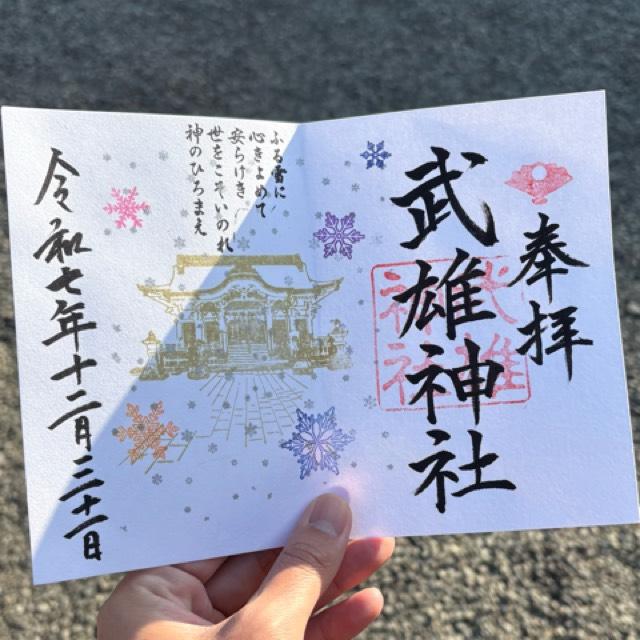 奉拝
武雄神社
武雄神社
ふる雪に
心きよめて
安らけき
世をこそいのれ
神のひろまえ
令和七年十二月三十一日